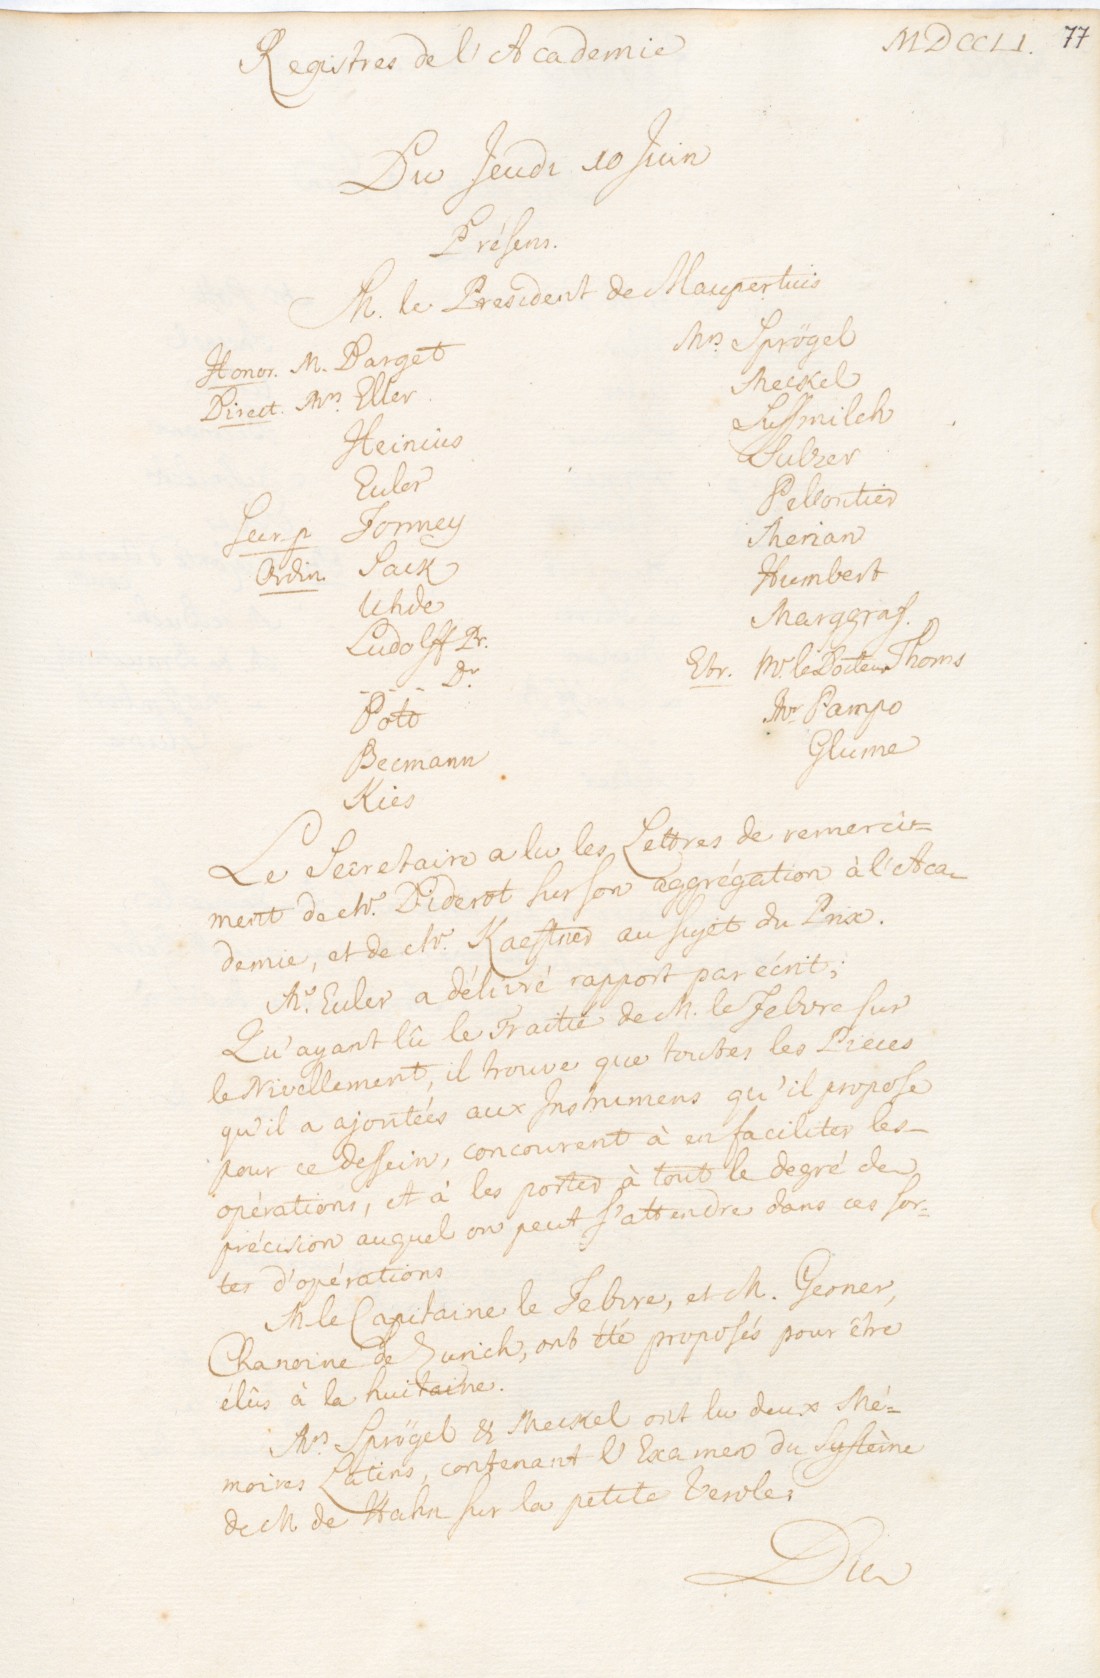 Registres de l'Academie
MDCCLI. 77
Du Jeudi 10 Juin
Présens.
M. le President de Maupertuis
Honor. M. Darget
Direct. Mrs. Eller
Heinius
Euler
Secr. p Formey
Ordin. Sack
Uhde
Ludolff Pr.
- - - - Dr
Pott
Becmann
Kies
Mrs. Sprögel
Meckel
Sussmilch
Sulzer
Pelloutier
Merian
Humbert
Marggraf.
Etr. Mr. le Docteur Thoms
Mr Pampo
Glume
Le Secretaire a lu les Lettres de remerci=
ment de Mr. Diderot sur son aggrégation à l'Aca-
demie, et de Mr. Kaestner au sujet du Prix.
Mr. Euler a délivré rapport par écrit;
Qu'ayant lû le Traité de M. le Febvre sur
le Nivellement, il trouve que toutes les Pieces
qu'il a ajoutées aux Instrumens qu'il propose
pour ce dessein, concourent à en faciliter les
opérations, et à les porter à tout le degré de
précision auquel on peut s'attendre dans ces sor=
tes d'opérations
M. le Capitaine le Febvre, et M. Gesner,
Chanoine de Zurich, ont été proposés pour être
élûs à la huitaine.
Mrs Sprögel & Meckel ont lu deux Mé=
moires Latins, contenant l'Examen du Systeme
de M. de Hahn sur la petite Verole.
Du